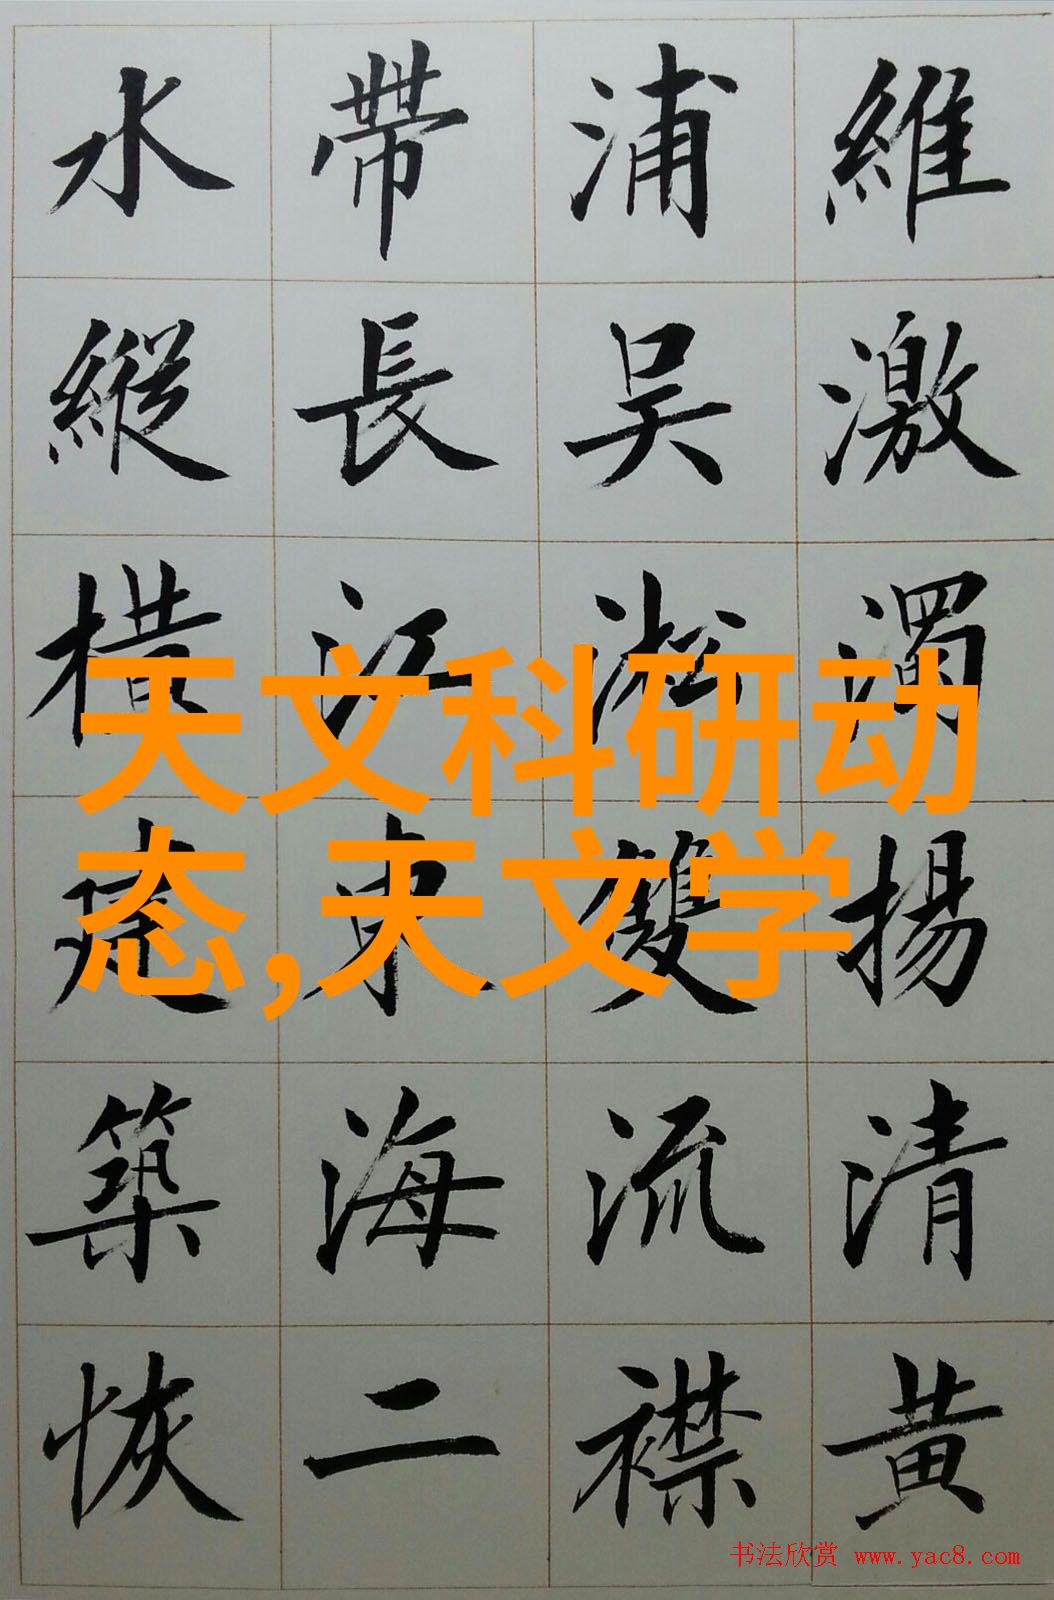 維激濁揚清黄
浦吴淞雙流襟
帶長江東海二
水縱橫建築恢
天文科研动
态,天文学
书法欣赏 www.yac8.com